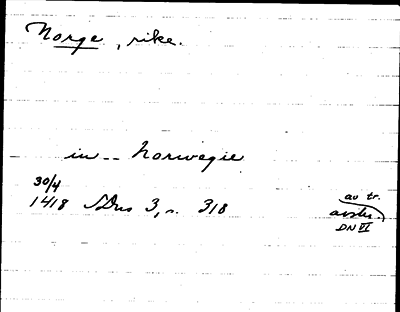 Norge, rike.
in -- Norwegie
30/4
1418 SDns 3, n. 318
av tr.
avskr.
DN VI